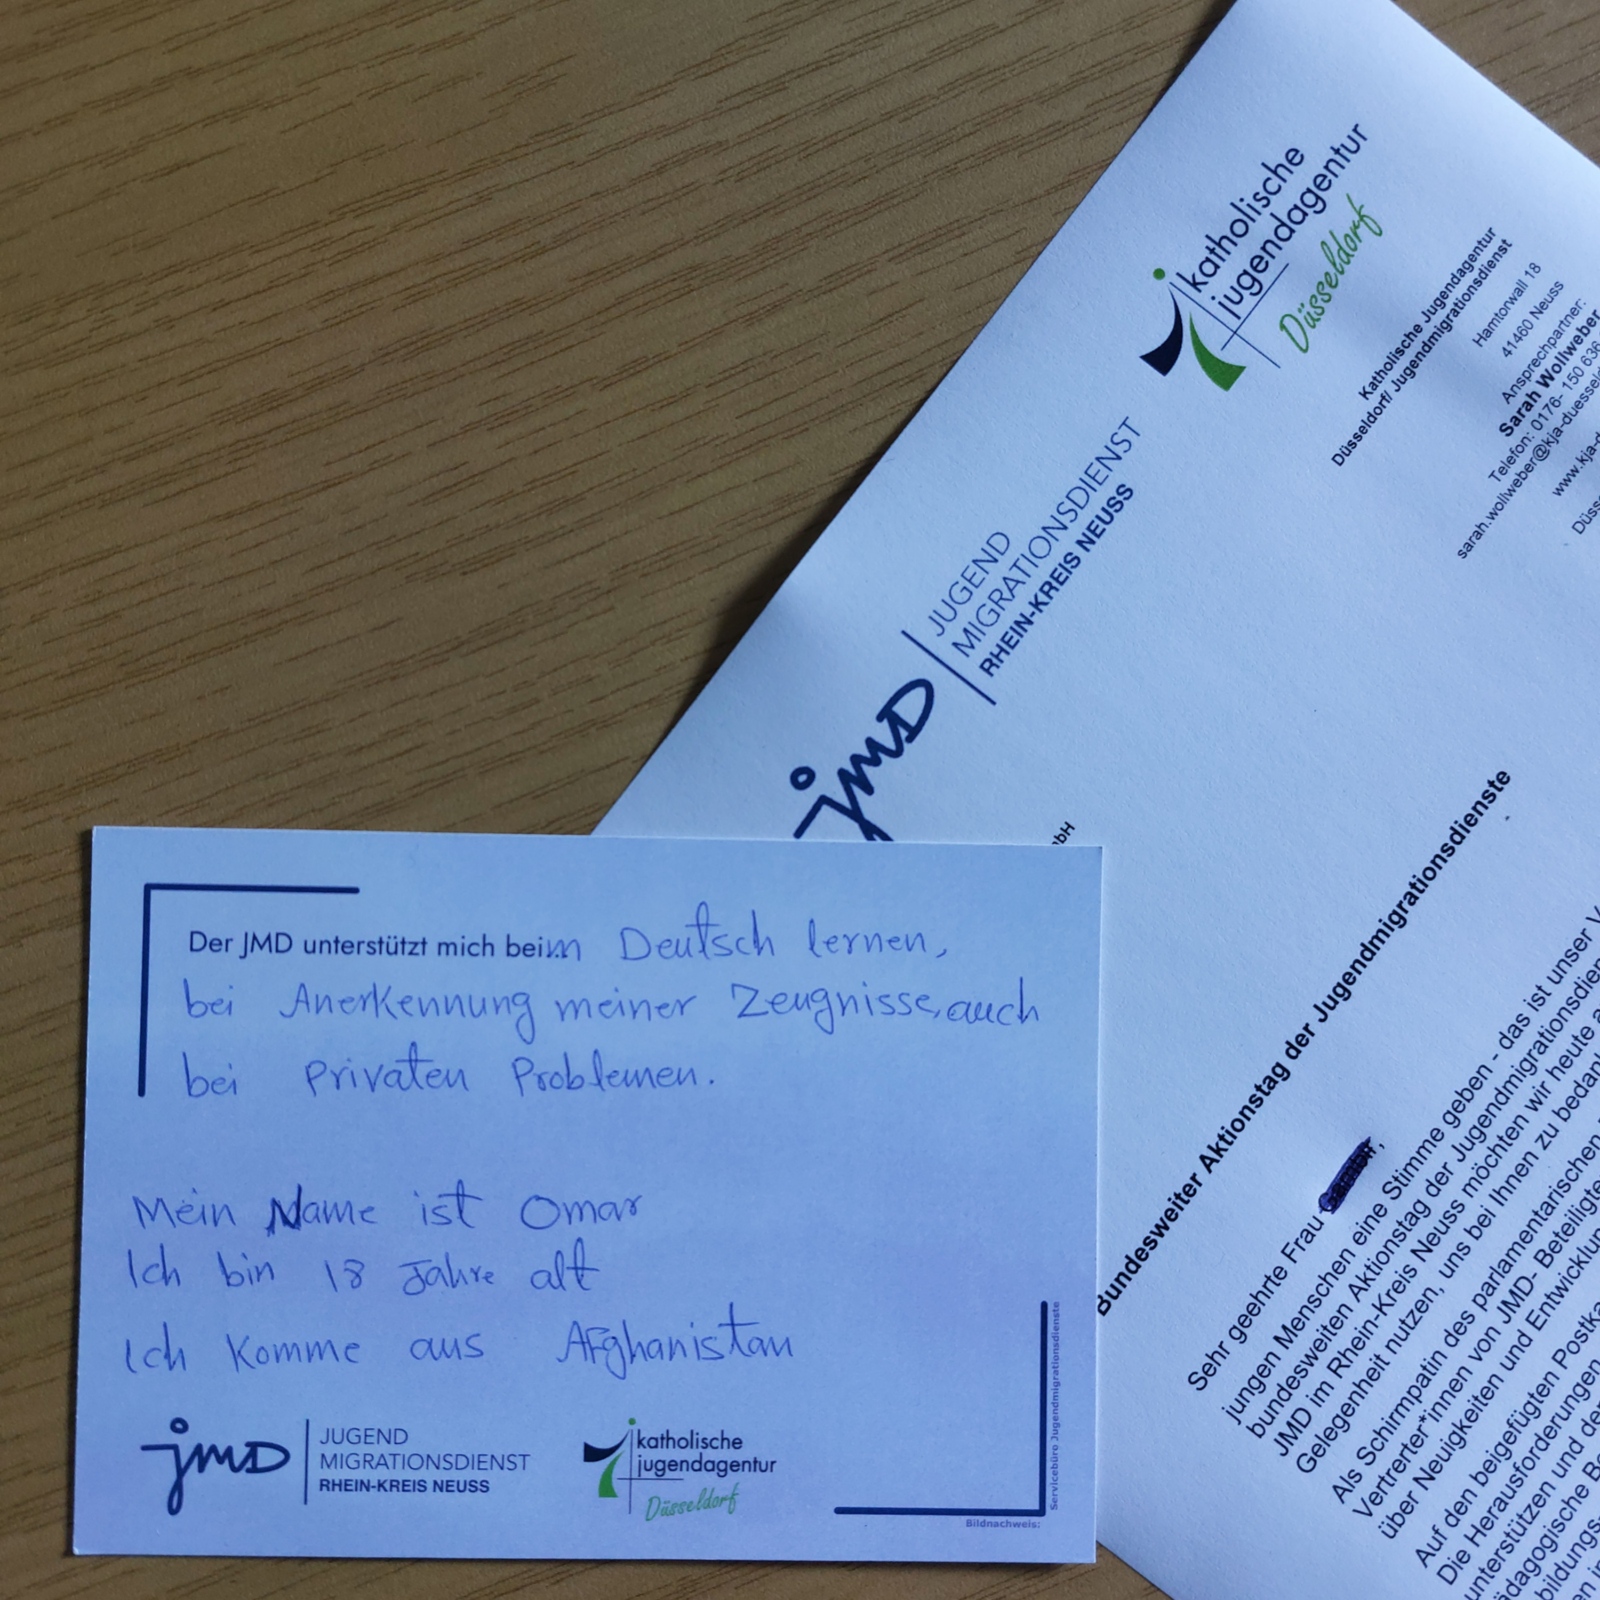 katholische
jugendagentur
Düsseldorf
Katholische Jugendagentur
Düsseldorf/ Jugendmigrationsdienst
Hamtorwall 18
41460 Neuss
Ansprechpartner:
Sarah Wollweber
Telefon: 0176- 150 636
sarah.wollweber@kja-duesseld
www.kja-d
Düss
jMD
JUGEND
MIGRATIONSDIENST
RHEIN-KREIS NEUSS
Bundesweiter Aktionstag der Jugendmigrationsdienste
Sehr geehrte Frau ,
jungen Menschen eine Stimme geben - das ist unser V
bundesweiten Aktionstag der Jugendmigrationsdien
JMD im Rhein-Kreis Neuss möchten wir heute a
Gelegenheit nutzen, uns bei Ihnen zu bedan
Als Schirmpatin des parlamentarischen
Vertreter*innen von JMD- Beteiligte
über Neuigkeiten und Entwicklun
Auf den beigefügten Postka
Die Herausforderungen
unterstützen und de
ädagogische Be
bildungs
Der JMD unterstützt mich beim Deutsch lernen,
bei Anerkennung meiner Zeugnisse, auch
bei Privaten Problemen.
Mein Name ist Omar
Ich bin 18 Jahre alt
Ich Komme aus Afghanistan
jMD
JUGEND
MIGRATIONSDIENST
RHEIN-KREIS NEUSS
katholische
jugendagentur
Düsseldorf
Bildnachweis:
Servicebüro Jugendmigrationsdienste